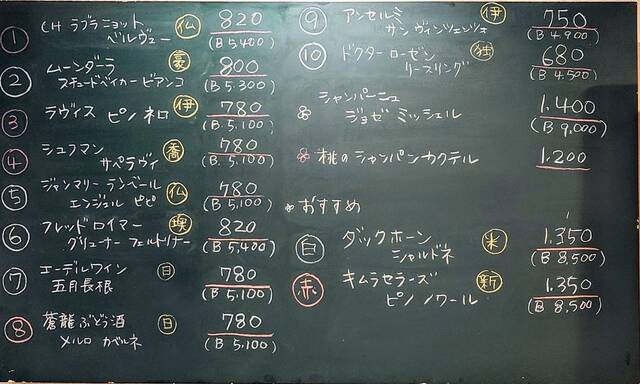 ① CH ラブラニョット ベルヴュー 仏 820
(B 5,400)
② ムーンダラ
スチュードベイカー ビアンコ 豪 800
(B 5,300)
③ ラヴィス ピノ ネロ 伊 780
(B 5,100)
④ シュフマン
サペラヴィ 喬 780
(B 5,100)
⑤ ジャンマリー テンベール
エンジェル ピピ 仏 780
(B 5,100)
⑥ フレッドロイマー
グリューナー フェルトリナー 墺 820
(B 5,400)
⑦ エーデルワイン
五月長根 日 780
(B 5,100)
⑧ 蒼龍 ぶどう酒
メルロ カベルネ 日 780
(B 5,100)
⑨ アンセルミ
サン ヴィンツェンツォ 伊 750
(B 4,900)
⑩ ドクターローゼン
リースリング 独 680
(B 4,500)
シャンパーニュ
ジョゼ ミッシェル 1.400
(B 9,000)
桃のシャンパンカクテル 1.200
おすすめ
白 ダックホーン
シャルドネ 米 1.350
(B 8,500)
赤 キムラセラーズ
ピノ ノワール 新 1.350
(B 8,500)